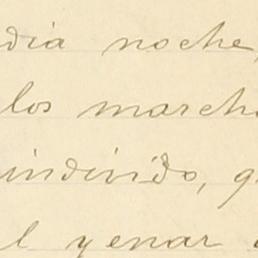 dia noche,
los march
individo, q
l yenar